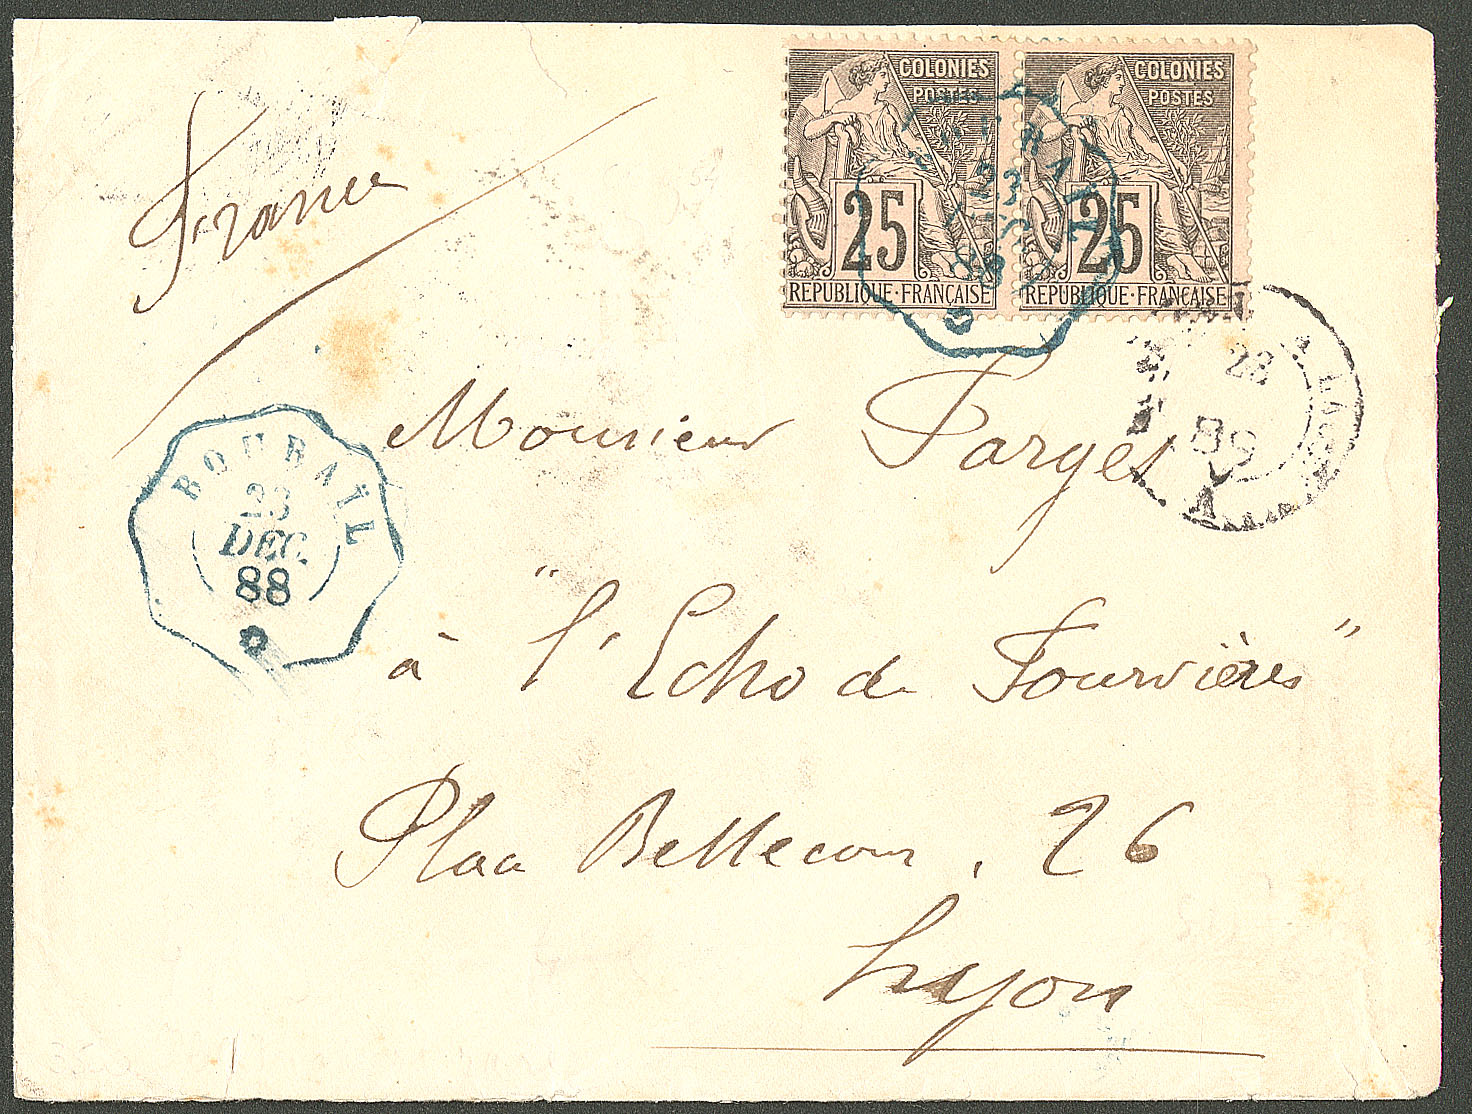 COLONIES
POSTES
25
REPUBLIQUE·FRANÇAISE
COLONIES
POSTES
25
REPUBLIQUE·FRANÇAISE
France
BOURAIL
23
DEC.
88
Monsieur Farges
à "l'Echo de Fourvières"
Place Bellecour, 26
Lyon